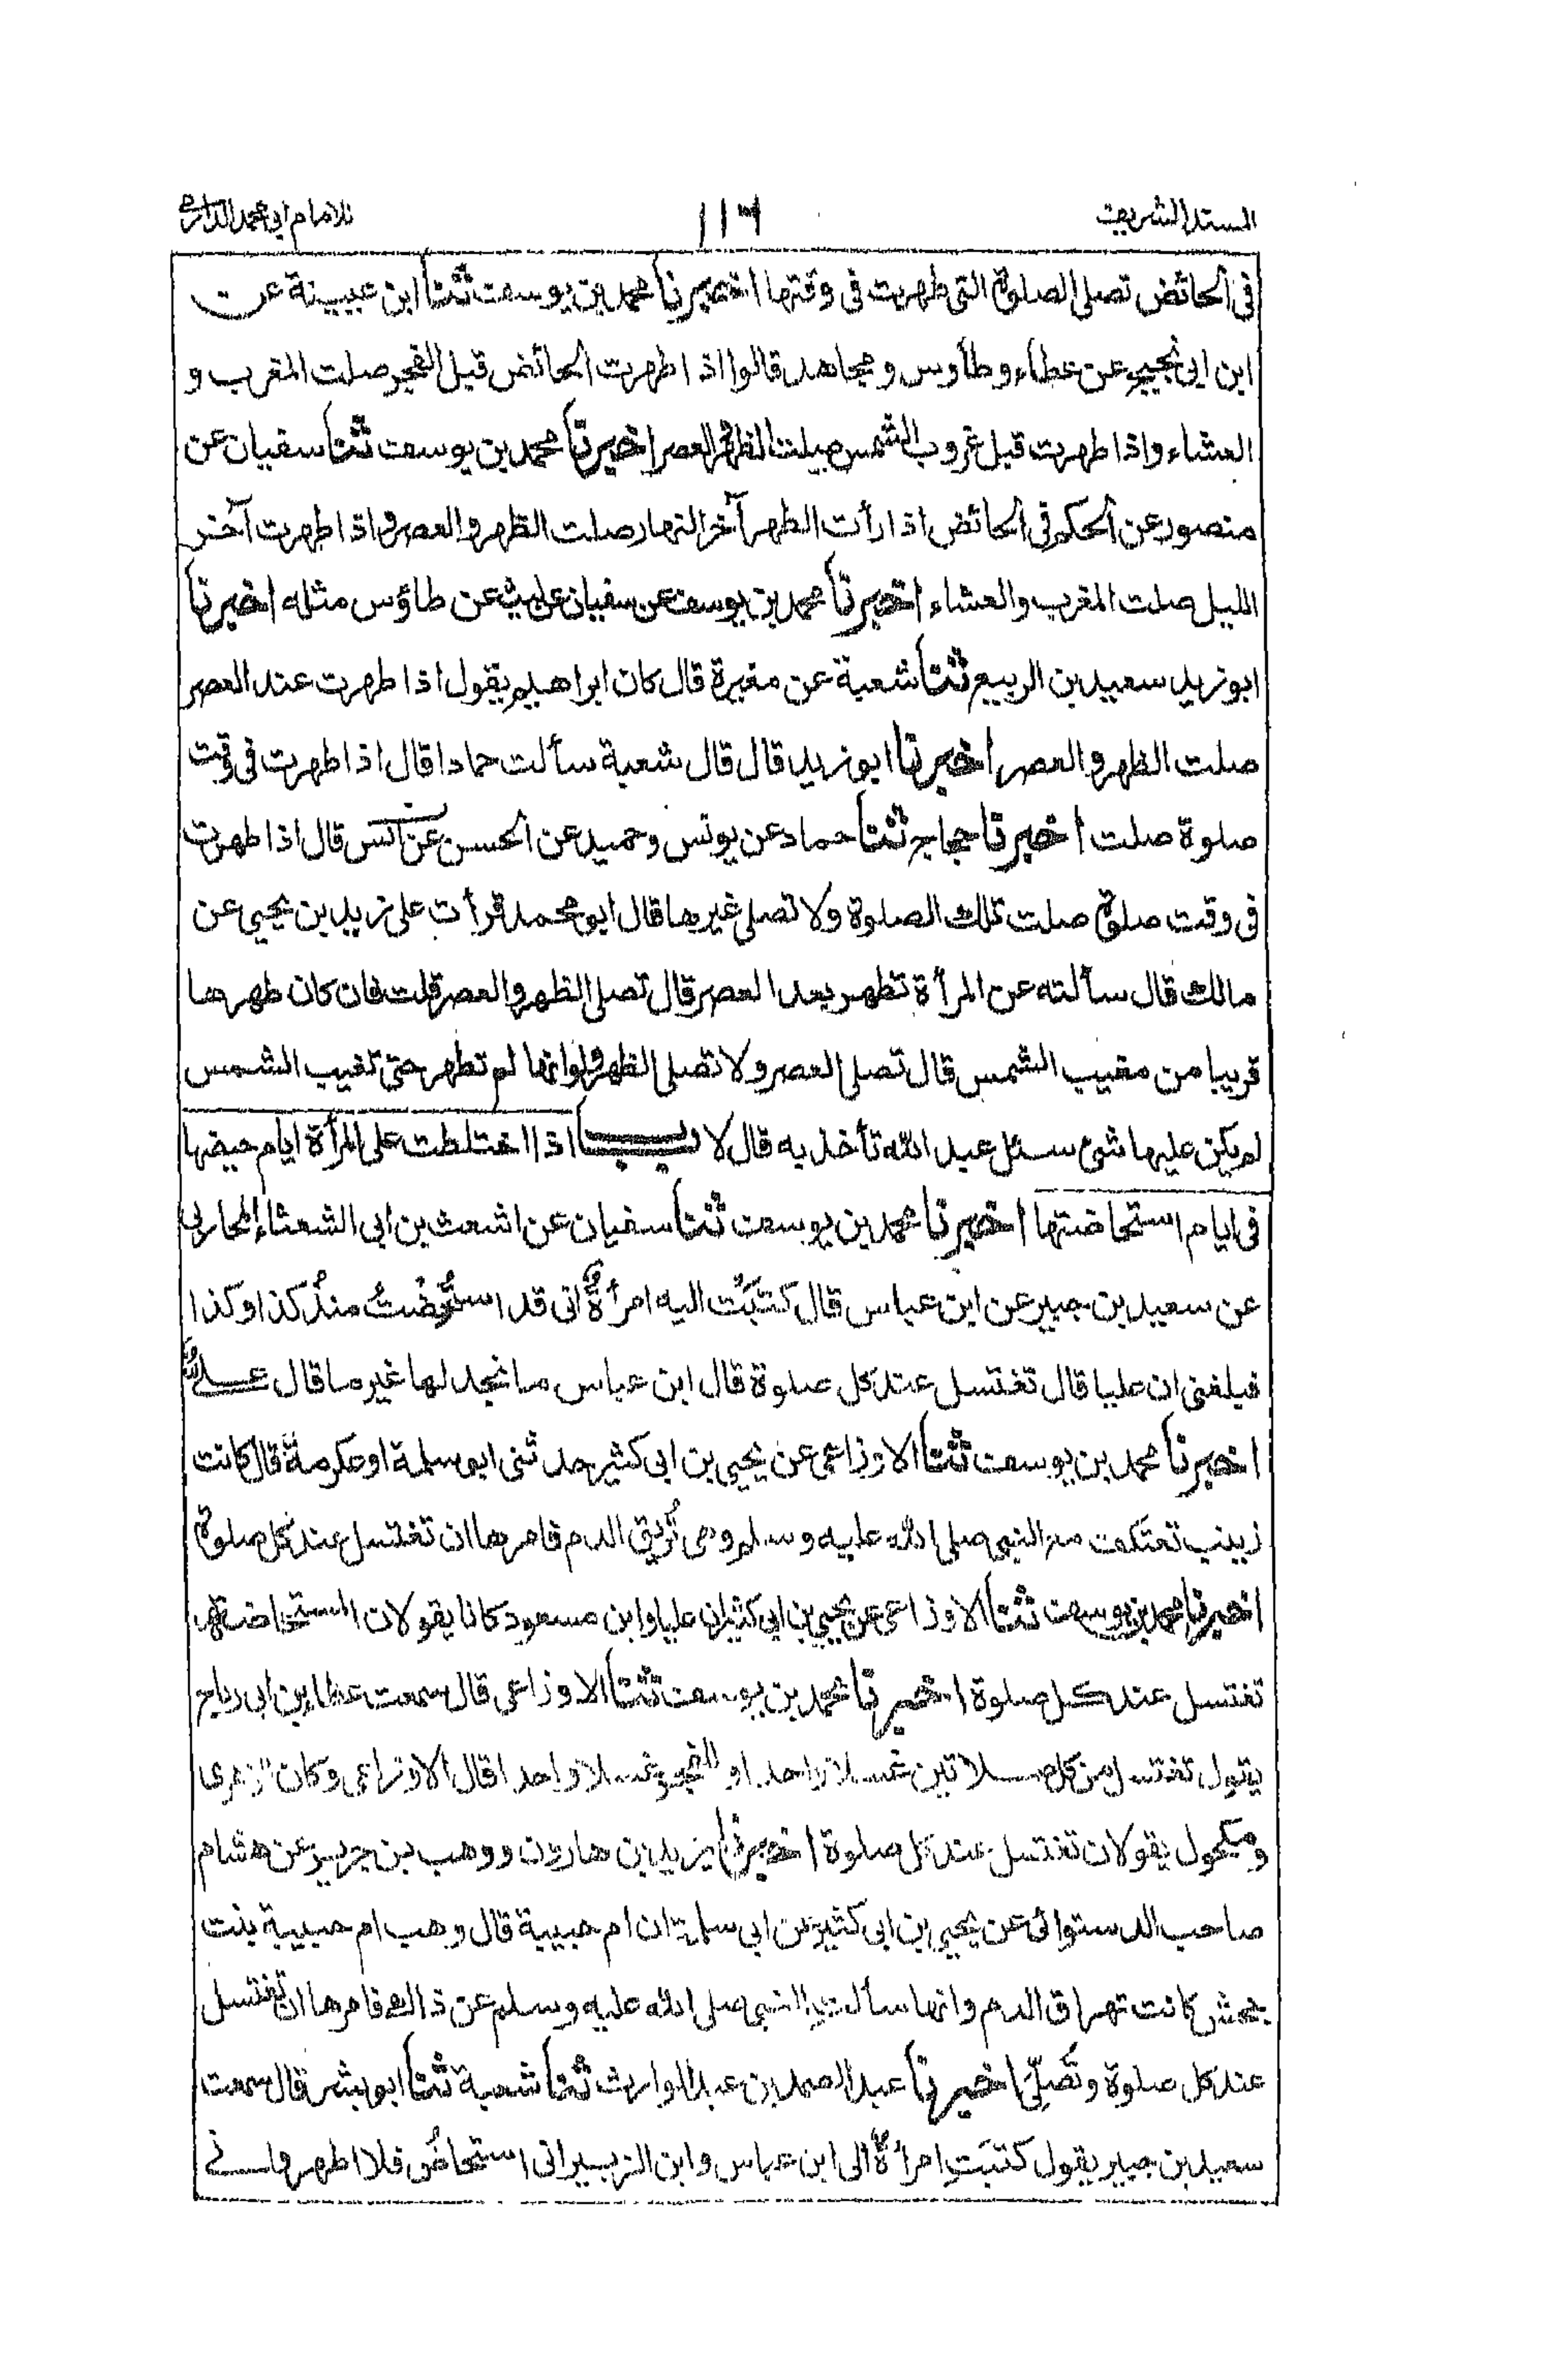 المسند الشريف
١١٦
للامام ابي محمد الدارمي
في الحائض تصلي الصلوة التي طهرت في وقتها اخبرنا محمد بن يوسف ثنا ابن عيينة عن
ابن ابي نجيح عن عطاء وطاوس ومجاهد قالوا اذا طهرت الحائض قبل الفجر صلت المغرب و
العشاء واذا طهرت قبل غروب الشمس صلت الظهر والعصر اخبرنا محمد بن يوسف ثنا سفيان عن
منصور عن الحكم في الحائض اذا رأت الطهر آخر النهار صلت الظهر والعصر واذا طهرت آخر
الليل صلت المغرب والعشاء اخبرنا محمد بن يوسف عن سفيان عن ليث عن طاؤس مثله اخبرنا
ابو زيد سعيد بن الربيع ثنا شعبة عن مغيرة قال كان ابراهيم يقول اذا طهرت عند العصر
صلت الظهر والعصر اخبرنا ابو زيد قال قال شعبة سألت حمادا قال اذا طهرت في وقت
صلوة صلت اخبرنا حجاج ثنا حماد عن يونس وحميد عن الحسن عن انس قال اذا طهرت
في وقت صلوة صلت تلك الصلوة ولا تصلي غيرها قال ابو محمد قرأت على زيد بن يحيى عن
مالك قال سألته عن المرأة تطهر بعد العصر قال تصلي الظهر والعصر قلت فان كان طهرها
قريبا من مغيب الشمس قال تصلي العصر ولا تصلي الظهر ولو انها لم تطهر حتى تغيب الشمس
لم يكن عليها شئ سئل عبد الله تأخذ به قال لا باب اذا اختلطت على المرأة ايام حيضها
في ايام استحاضتها اخبرنا محمد بن يوسف ثنا سفيان عن اشعث بن ابي الشعثاء المحاربي
عن سعيد بن جبير عن ابن عباس قال كتبت اليه امرأة اني قد استُحِضْتُ منذ كذا وكذا
فبلغني ان عليا قال تغتسل عند كل صلوة قال ابن عباس ما نجد لها غير ما قال علي
اخبرنا محمد بن يوسف ثنا الاوزاعي عن يحيى بن ابي كثير حدثني ابو سلمة او عكرمة قال كانت
زينب تعتكف مع النبي صلى الله عليه وسلم وهي تُريق الدم فامرها ان تغتسل عند كل صلوة
اخبرنا محمد بن يوسف ثنا الاوزاعي عن يحيى بن ابي كثير ان عليا وابن مسعود كانا يقولان المستحاضة
تغتسل عند كل صلوة اخبرنا محمد بن يوسف ثنا الاوزاعي قال سمعت عطاء بن ابي رباح
يقول تغتسل من كل صلاتين غسلا واحدا وللفجر غسلا واحدا قال الاوزاعي وكان الزهري
ومكحول يقولان تغتسل عند كل صلوة اخبرنا يزيد بن هارون ووهب بن جرير عن هشام
صاحب الدستوائي عن يحيى بن ابي كثير عن ابي سلمة ان ام حبيبة قال وهب ام حبيبة بنت
جحش كانت تهراق الدم وانها سألت النبي صلى الله عليه وسلم عن ذالك فامرها ان تغتسل
عند كل صلوة وتُصَلِّي اخبرنا عبد الصمد بن عبد الوارث ثنا شعبة ثنا ابو بشر قال سمعت
سعيد بن جبير يقول كتبَت امرأةٌ الى ابن عباس وابن الزبير اني استحاضُ فلا اطهر واني